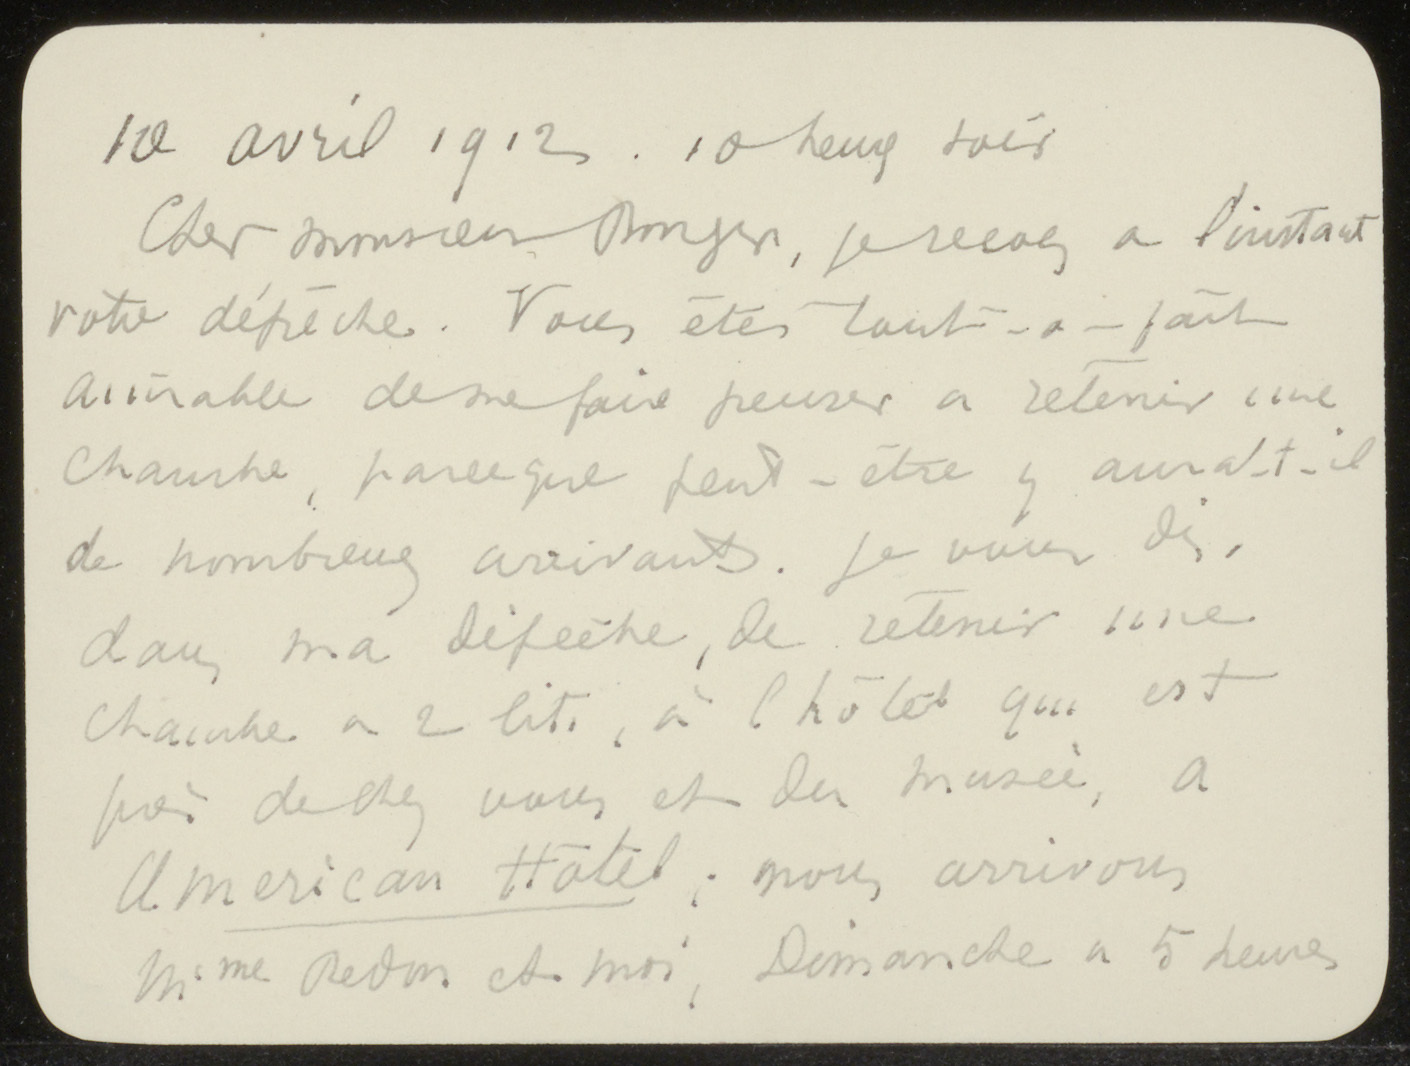 10 avril 1912. 10 heures soir
Cher monsieur Bonger, je reçois a l'instant
votre dépêche. Vous êtes tout-a-fait
aimable de me faire penser a retenir une
chambre, parceque peut-être y aura-t-il
de nombreux arrivants. Je vous dis,
dans ma dépêche, de retenir une
chambre a 2 lits, à l'hôtel qui est
près de chez vous et du musée, a
American Hôtel; nous arrivons
Mme Redon et moi, Dimanche a 5 heures